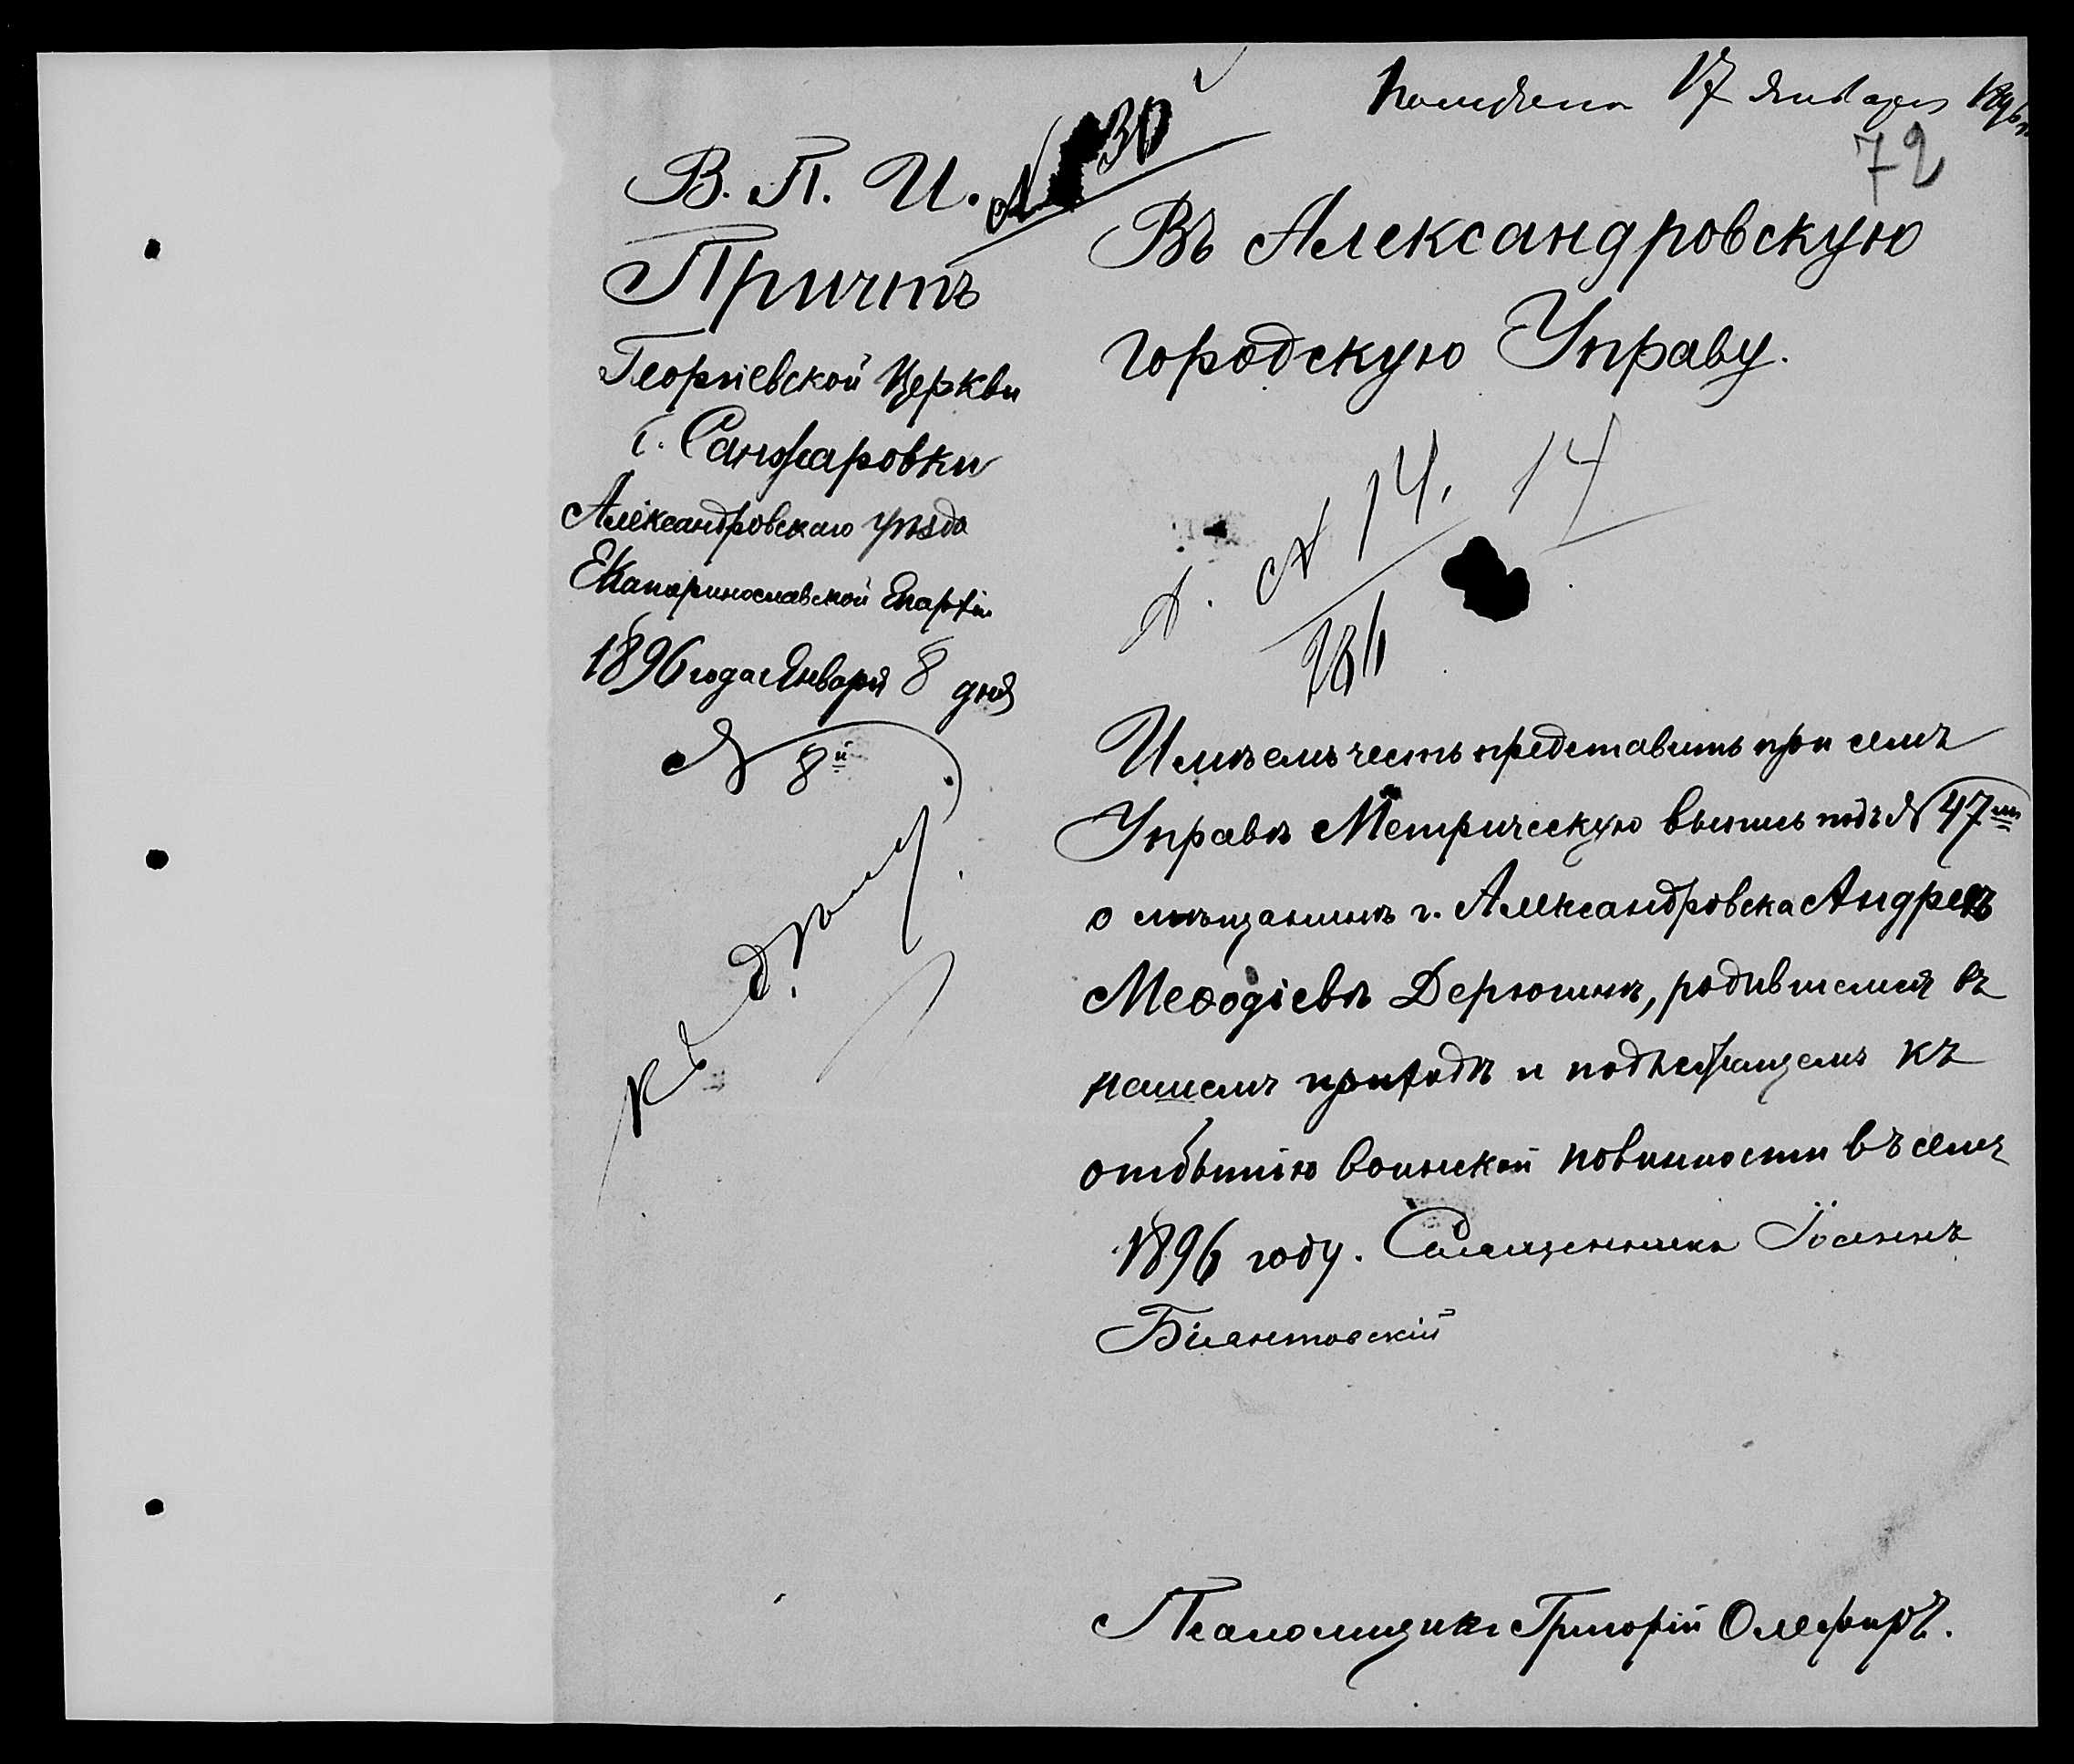 Получена 17 Января 1896 г.
72
В. П. И. № 30
Причтъ
Георгіевской Церкви
с. Санжаровки
Александровскаго уѣзда
Екатеринославской Епархіи
1896 года Января 8 дня
№ 8й
Къ дѣлу
Въ Александровскую
городскую Управу.
№ 14. 14
Имѣемъ честь представить при семъ
Управѣ Метрическую выпись подъ № 47мъ
о мѣщанинѣ г. Александровска Андреѣ
Меѳодіевѣ Дерюгинѣ, родившемся въ
нашемъ приходѣ и подлежащемъ къ
отбытію воинской повинности въ семъ
1896 году. Священникъ Іоаннъ
Псаломщикъ Григорій Олефиръ.